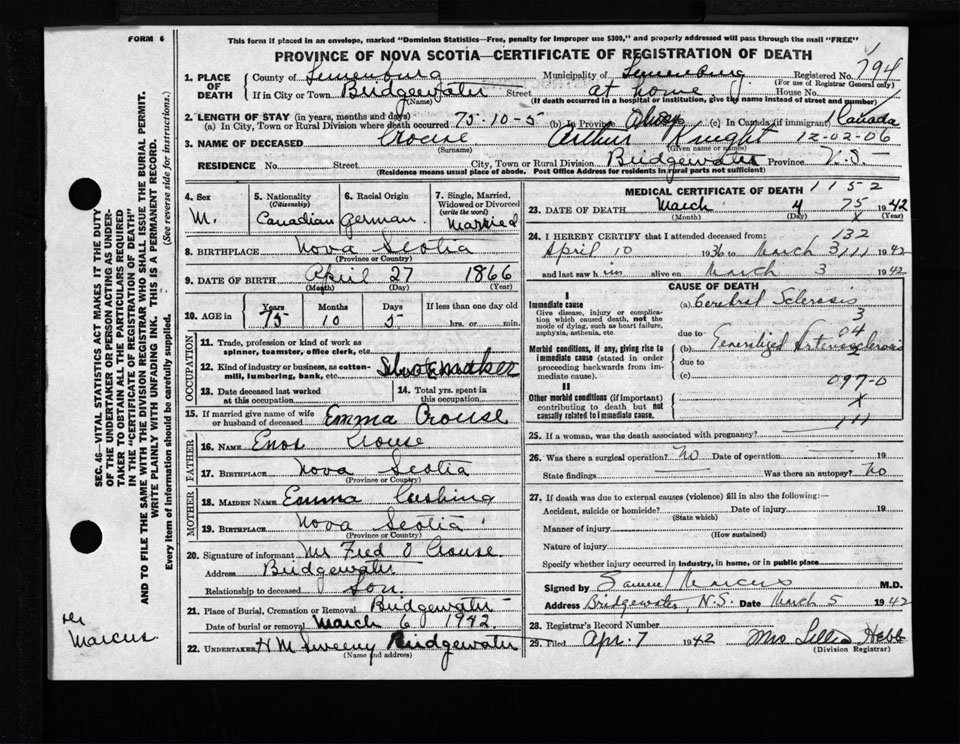 FORM 6
This form if placed in an envelope, marked "Dominion Statistics—Free, penalty for improper use $300," and properly addressed will pass through the mail "FREE"
PROVINCE OF NOVA SCOTIA—CERTIFICATE OF REGISTRATION OF DEATH
1. PLACE OF DEATH
County of Lunenburg Municipality of Lunenburg Registered No. 794
(For use of Registrar General only)
If in City or Town Bridgewater Street at home House No.
(Name) (If death occurred in a hospital or institution, give the name instead of street and number)
2. LENGTH OF STAY (in years, months and days)
(a) In City, Town or Rural Division where death occurred 75-10-5 (b) In Province Always (c) In Canada (if immigrant) Canada
3. NAME OF DECEASED Crouse Arthur Knight 12-02-06
(Surname) (Given name or names)
RESIDENCE No. Street City, Town or Rural Division Bridgewater Province N.S.
(Residence means usual place of abode. Post Office Address for residents in rural parts not sufficient)
4. Sex
M.
5. Nationality
(Citizenship)
Canadian
6. Racial Origin
German
7. Single, Married, Widowed or Divorced
(write the word)
Married
8. BIRTHPLACE Nova Scotia
(Province or Country)
9. DATE OF BIRTH April 27 1866
(Month) (Day) (Year)
10. AGE in
Years Months Days If less than one day old
75 10 5 hrs. or min.
OCCUPATION
11. Trade, profession or kind of work as spinner, teamster, office clerk, etc.
12. Kind of industry or business, as cotton-mill, lumbering, bank, etc. Shoemaker
13. Date deceased last worked at this occupation
14. Total yrs. spent in this occupation
15. If married give name of wife or husband of deceased Emma Crouse
FATHER
16. NAME Enos Crouse
17. BIRTHPLACE Nova Scotia
(Province or Country)
MOTHER
18. MAIDEN NAME Emma
19. BIRTHPLACE Nova Scotia
(Province or Country)
20. Signature of informant Mr Fred O Crouse
Address Bridgewater
Relationship to deceased Son.
21. Place of Burial, Cremation or Removal Bridgewater
Date of burial or removal March 6 1942.
22. UNDERTAKER H M Sweeny Bridgewater
(Name and address)
MEDICAL CERTIFICATE OF DEATH 1152
23. DATE OF DEATH March 4 75 1942
(Month) (Day) x (Year)
24. I HEREBY CERTIFY that I attended deceased from: 132
April 10 1936 to March 3 111 1942
and last saw him alive on March 3 1942
CAUSE OF DEATH
I
Immediate cause
Give disease, injury, or complication which caused death, not the mode of dying, such as heart failure, asphyxia, asthenia, etc.
(a) Cerebral Sclerosis
3
due to 04
Morbid conditions, if any, giving rise to immediate cause (stated in order proceeding backwards from immediate cause).
(b) Generalized Arteriosclerosis
due to
(c) 097-0
II
Other morbid conditions (if important) contributing to death but not causally related to immediate cause.
x
111
25. If a woman, was the death associated with pregnancy?
26. Was there a surgical operation? No Date of operation 19
State findings Was there an autopsy? No
27. If death was due to external causes (violence) fill in also the following:—
Accident, suicide or homicide? Date of injury 19
(State which)
Manner of injury
(How sustained)
Nature of injury
Specify whether injury occurred in industry, in home, or in public place
Signed by Samuel Marcus M.D.
Address Bridgewater, N.S. Date March 5 1942
28. Registrar's Record Number
29. Filed Apr. 7 1942 Mrs Lillie Hebb
(Division Registrar)
SEC. 46—VITAL STATISTICS ACT MAKES IT THE DUTY
OF THE UNDERTAKER OR PERSON ACTING AS UNDER-
TAKER TO OBTAIN ALL THE PARTICULARS REQUIRED
IN THE "CERTIFICATE OF REGISTRATION OF DEATH"
AND TO FILE THE SAME WITH THE DIVISION REGISTRAR WHO SHALL ISSUE THE BURIAL PERMIT.
WRITE PLAINLY WITH UNFADING INK. THIS IS A PERMANENT RECORD.
Every item of information should be carefully supplied. (See reverse side for instructions.)
Marcus